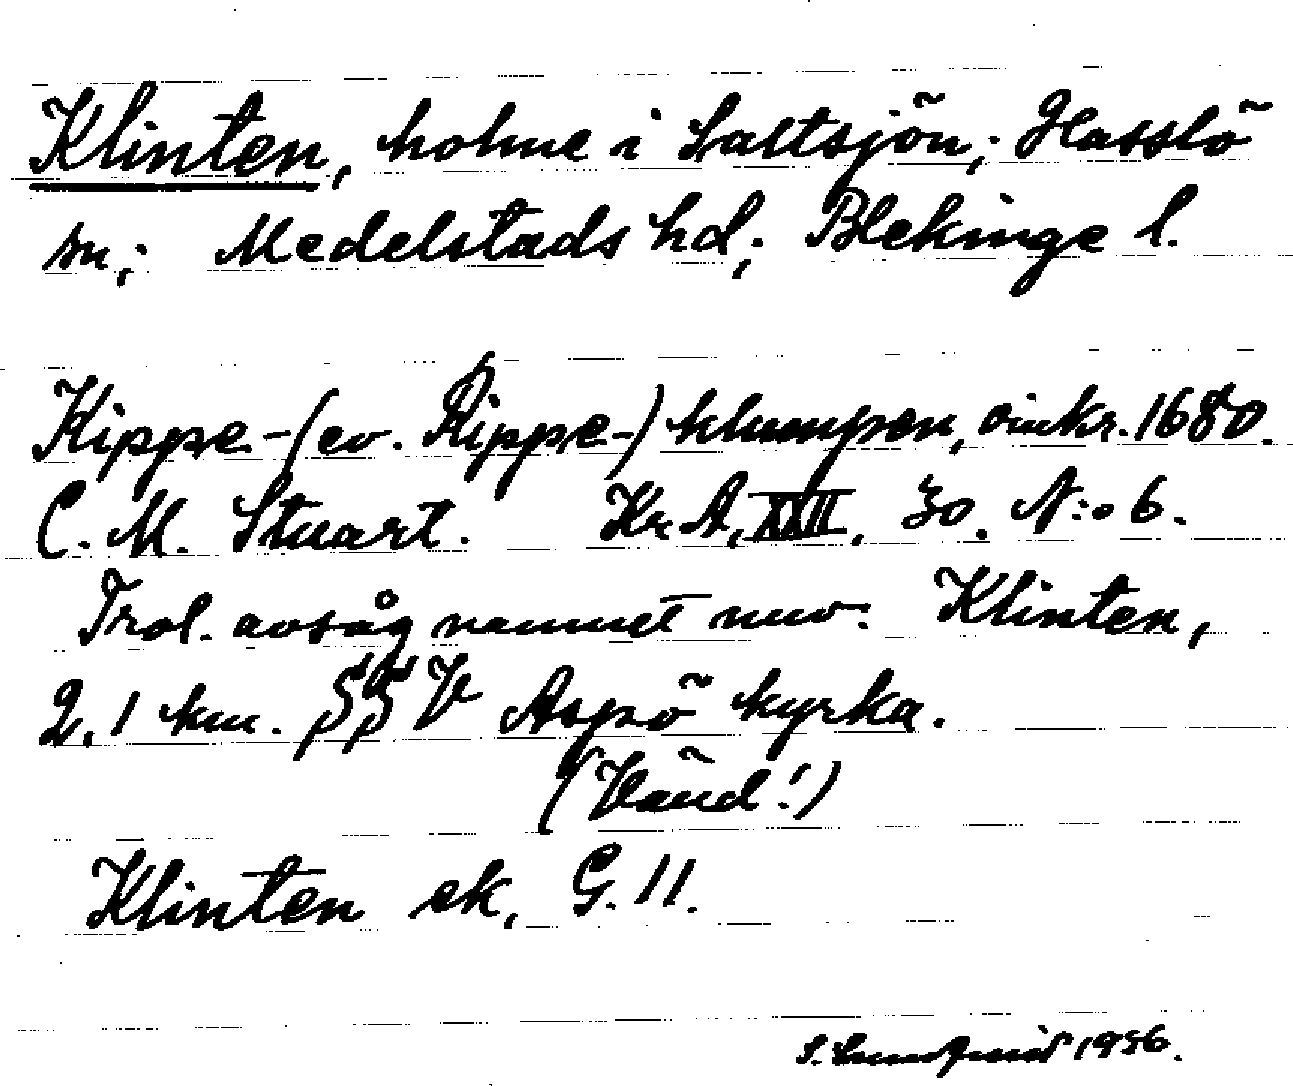 Klinten, holme i Saltsjön; Hasslö
sn; Medelstads hd; Blekinge l.
Kippe-(ev. Rippe-) klumpen, omkr. 1680.
C. M. Stuart. Kr. A, XXII, 30. N:o 6.
Trol. avsåg namnet nuv. Klinten,
2,1 km. SSV Aspö kyrka.
(Vänd!)
Klinten ek, G. 11.
S. 1956.